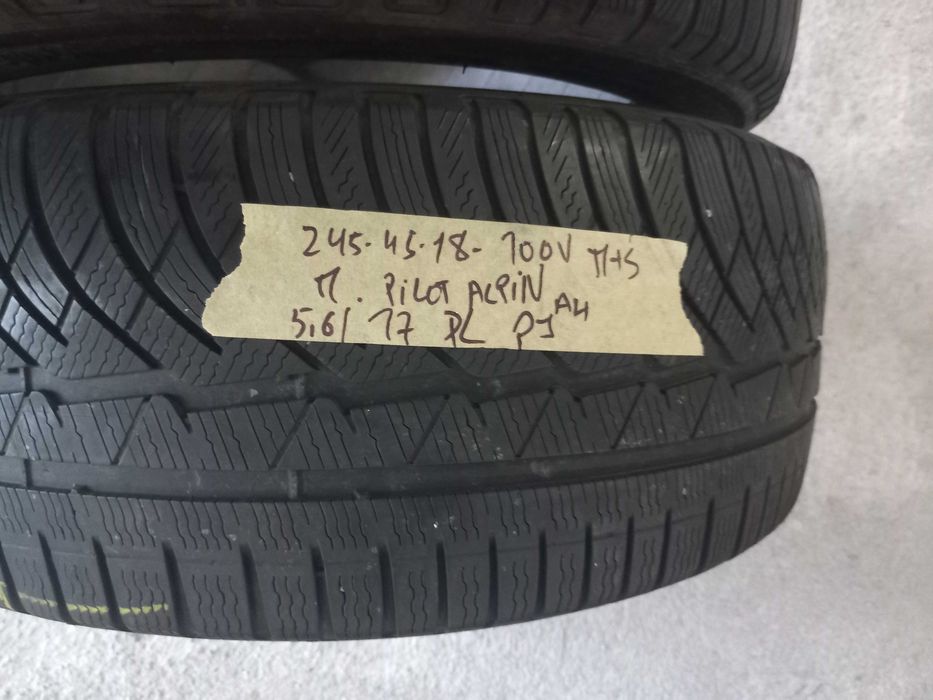 245-45-18- 100V M+S
M. PILOT ALPIN A4
5.6/ 17 PL P1